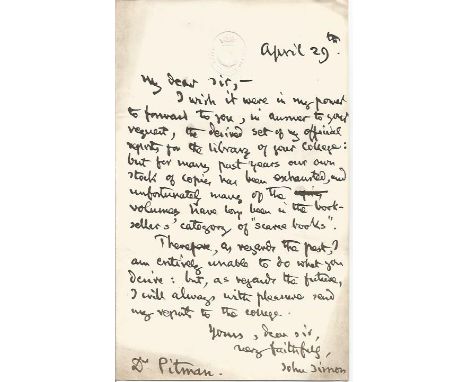 April 29th.
My dear Sir,—
I wish it were in my power
to forward to you, in answer to your
request, the desired set of my official
reports for the library of your college:
but for many past years our own
stock of copies has been exhausted, and
unfortunately many of the
volumes have long been in the book-
sellers' category of "scarce books".
Therefore, as regards the past, I
am entirely unable to do what you
desire: but, as regards the future,
I will always with pleasure send
my reports to the college.
Yours, dear Sir,
very faithfully,
John Simon
Dr Pitman.